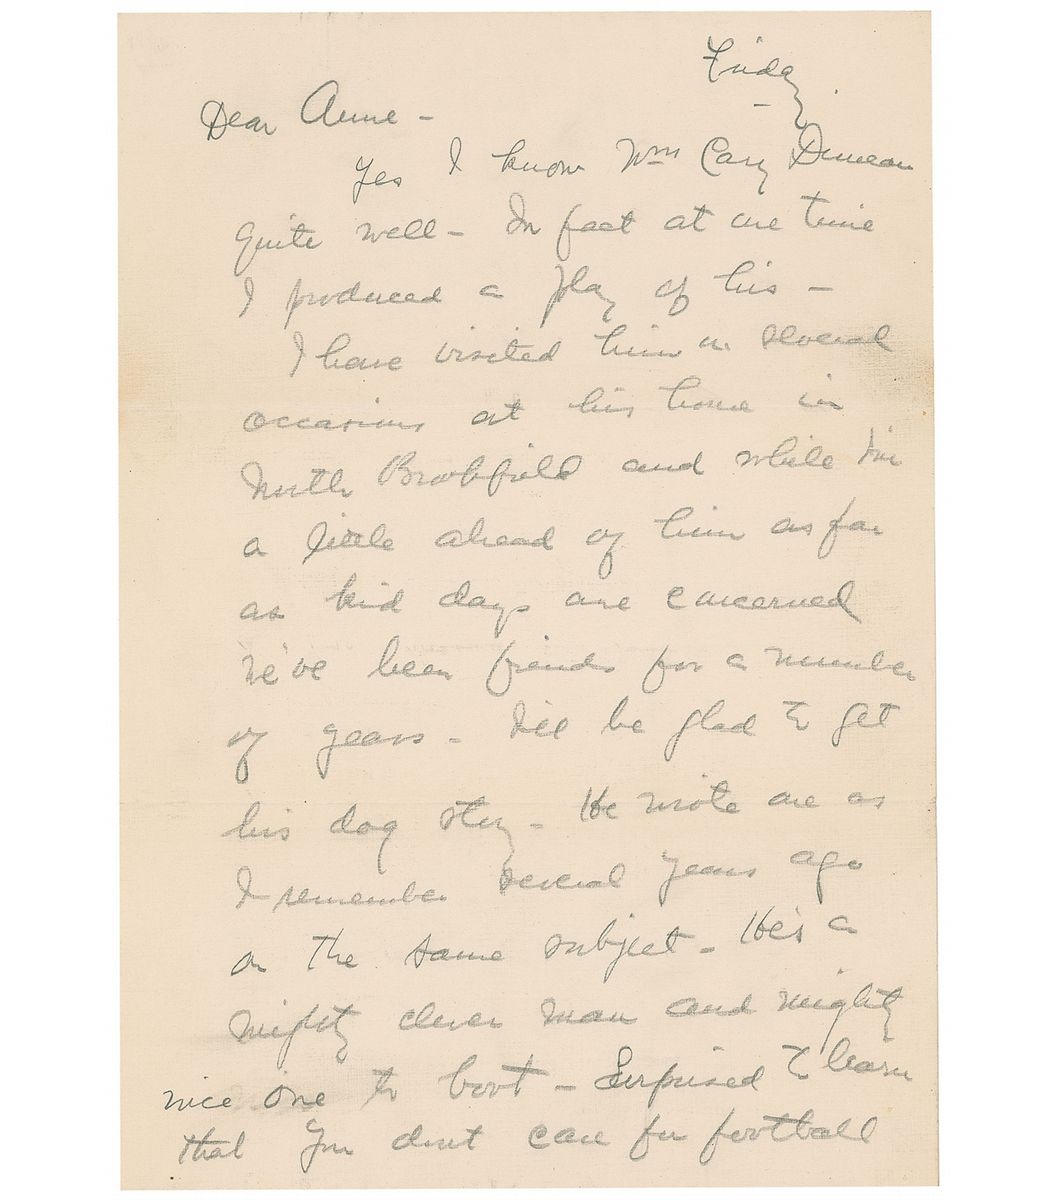 Friday
Dear Anne -
Yes I know Wm Cary Duncan
quite well - In fact at one time
I produced a play of his -
I have visited him on several
occasions at his home in
North Brookfield and while I'm
a little ahead of him as far
as kid days are concerned
we've been friends for a number
of years - I'll be glad to get
his dog story - He wrote one as
I remember several years ago
on the same subject - He's a
mighty clever man and mighty
nice one to boot - Surprised to learn
that you don't care for football